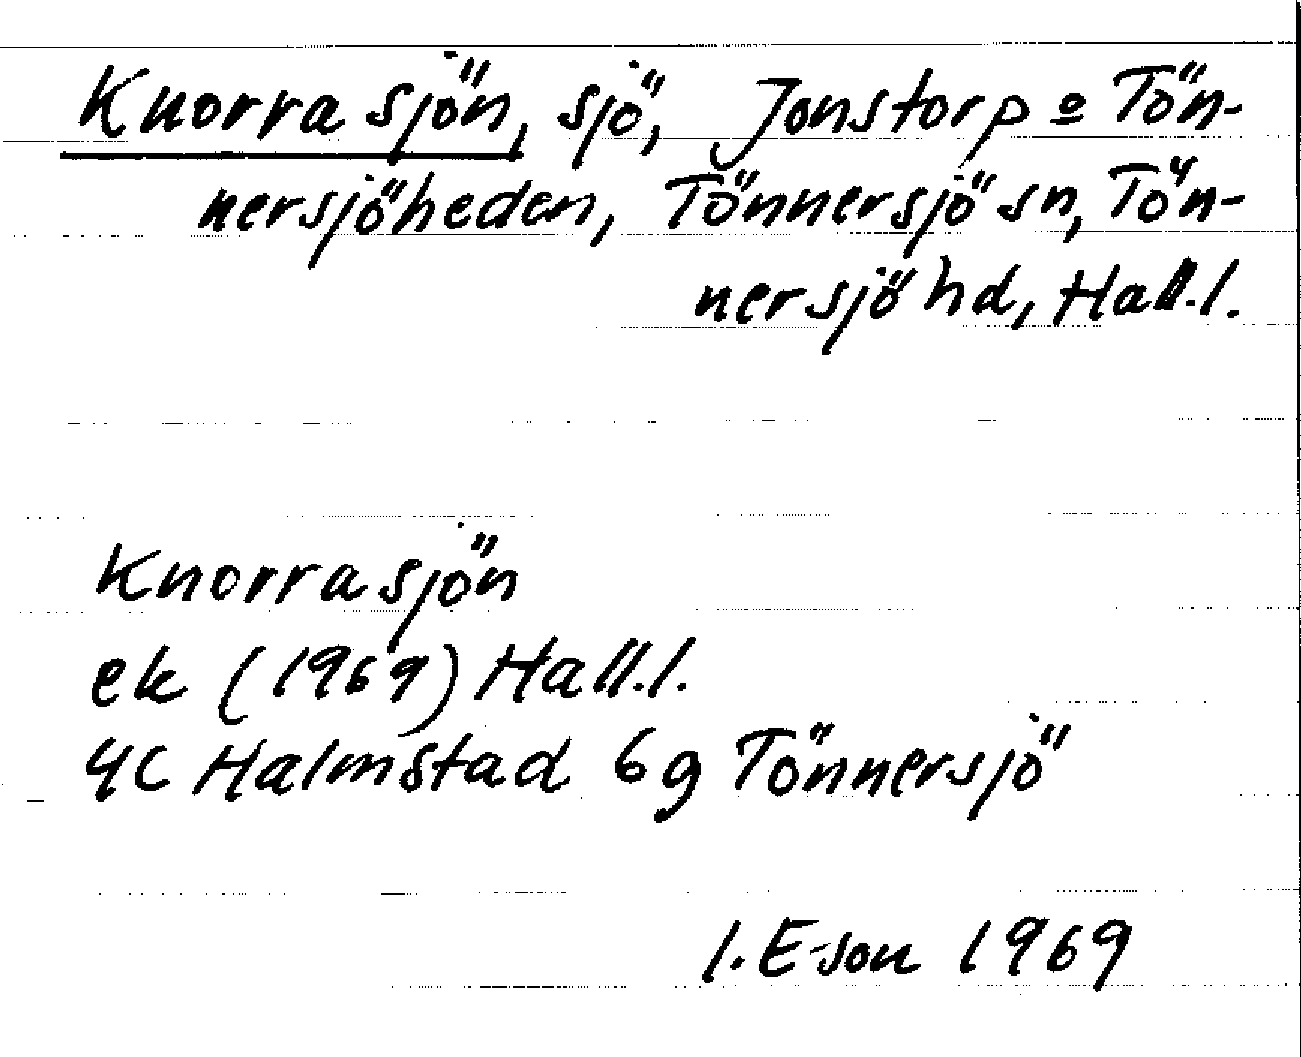 Knorrasjön, sjö, Jonstorp o Tön-
nersjöheden, Tönnersjö sn, Tön-
nersjö hd, Hall.l.
Knorrasjön
ek (1969) Hall.l.
4C Halmstad 6g Tönnersjö
I. E-son 1969